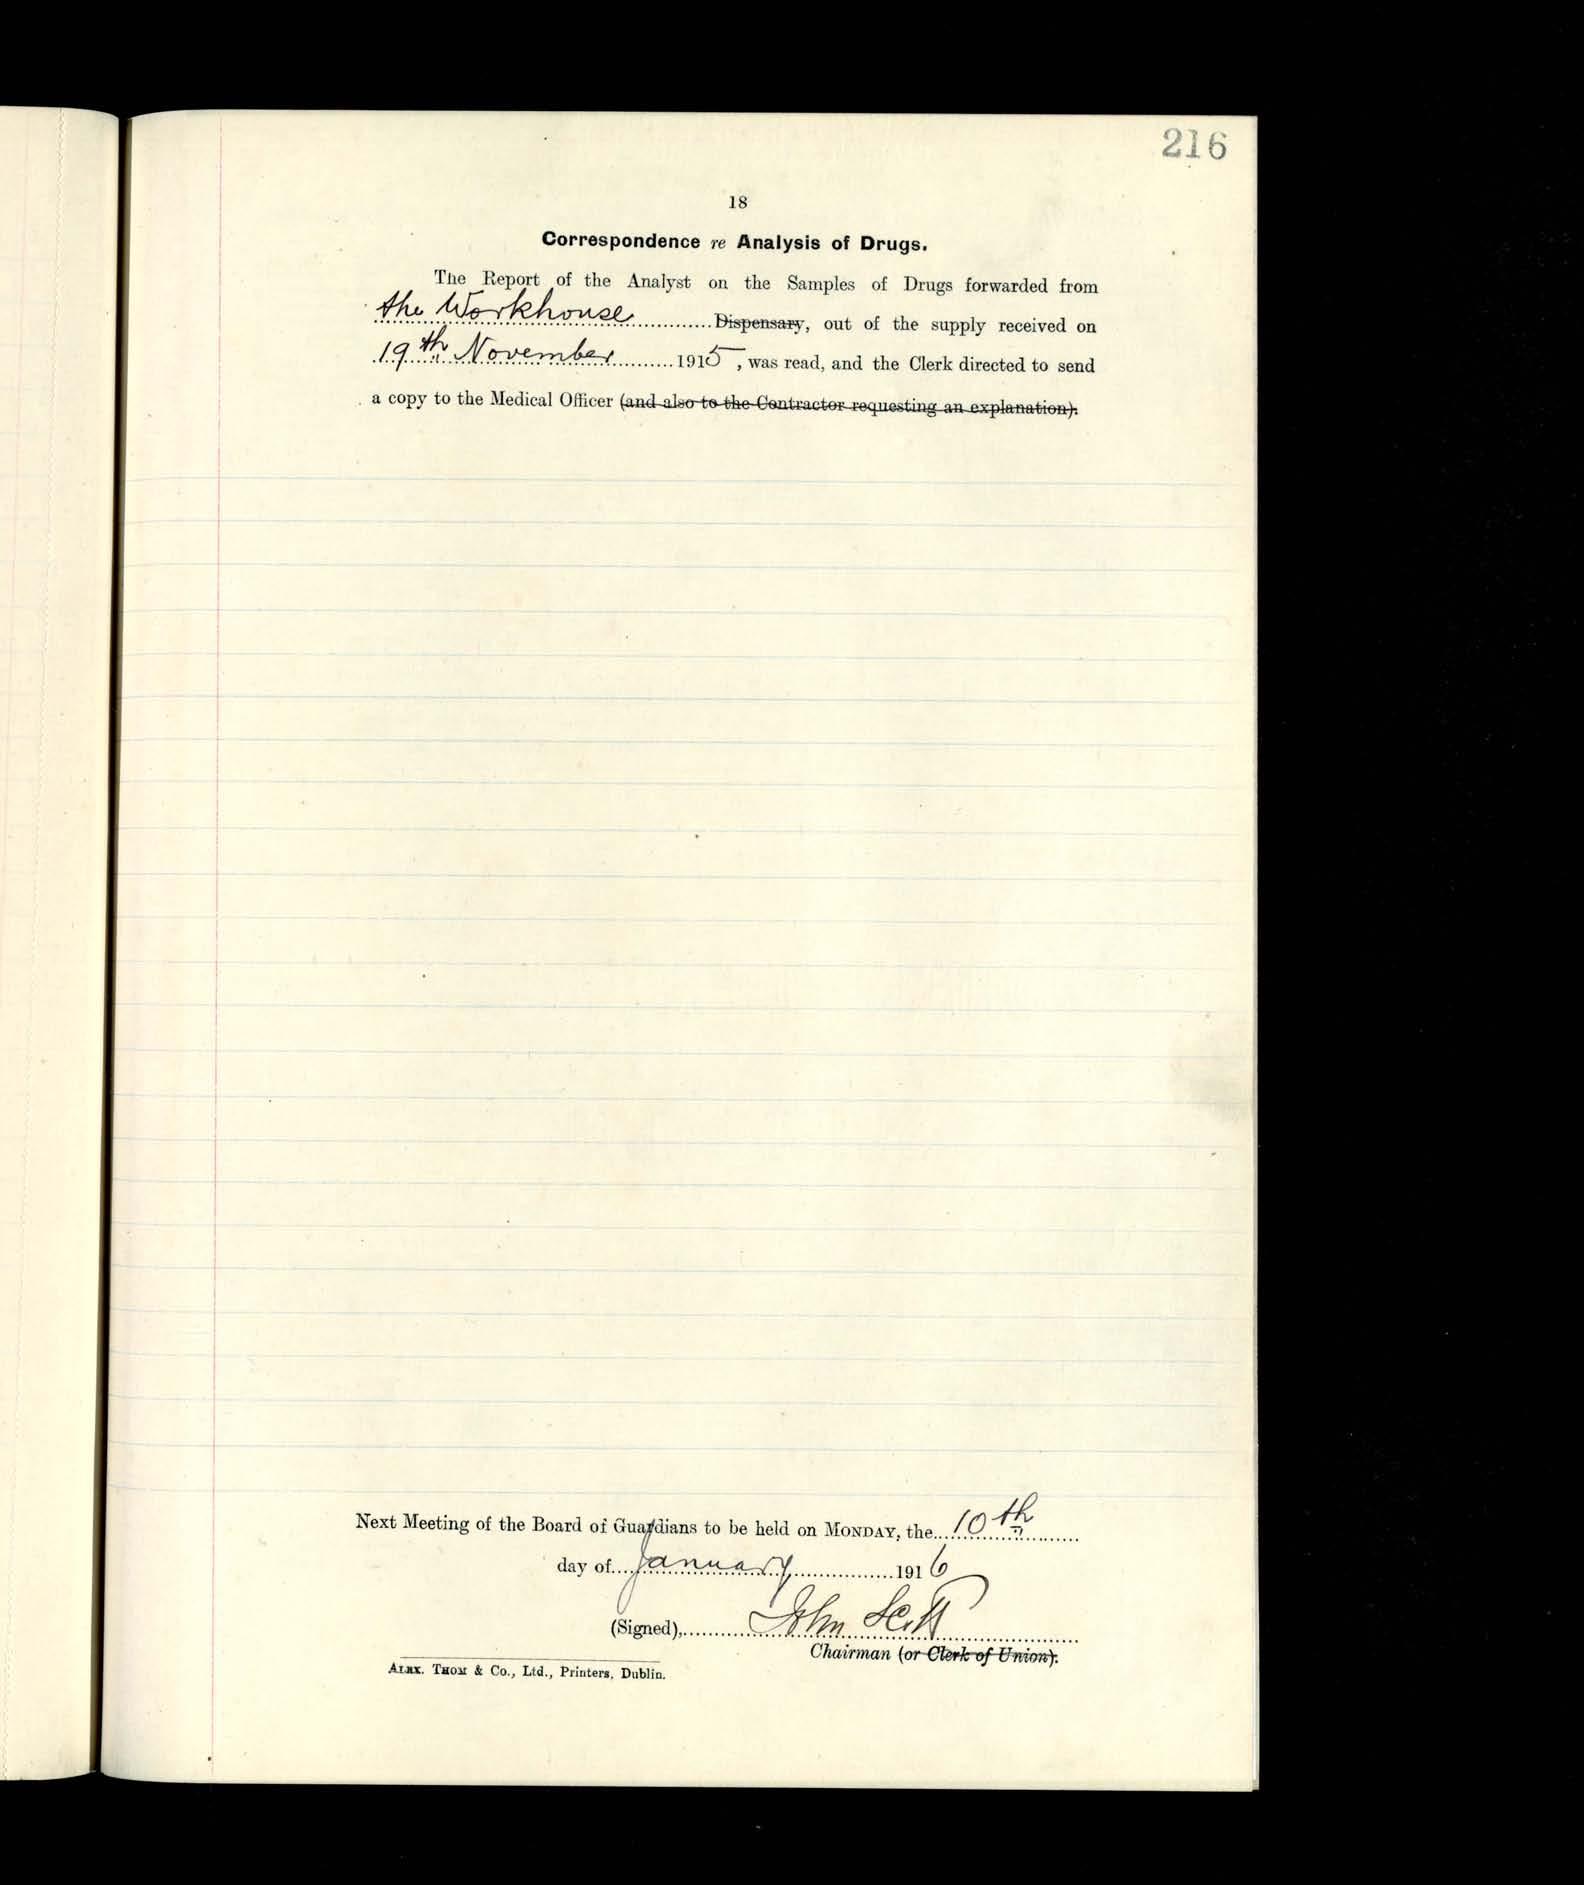 216
18
Correspondence re Analysis of Drugs.
The Report of the Analyst on the Samples of Drugs forwarded from
the Workhouse Dispensary, out of the supply received on
19th November 1915, was read, and the Clerk directed to send
a copy to the Medical Officer (and also to the Contractor requesting an explanation).
Next Meeting of the Board of Guardians to be held on MONDAY, the 10th
day of January 1916
(Signed), John Scott
Chairman (or Clerk of Union).
ALEX. THOM & Co., Ltd., Printers, Dublin.